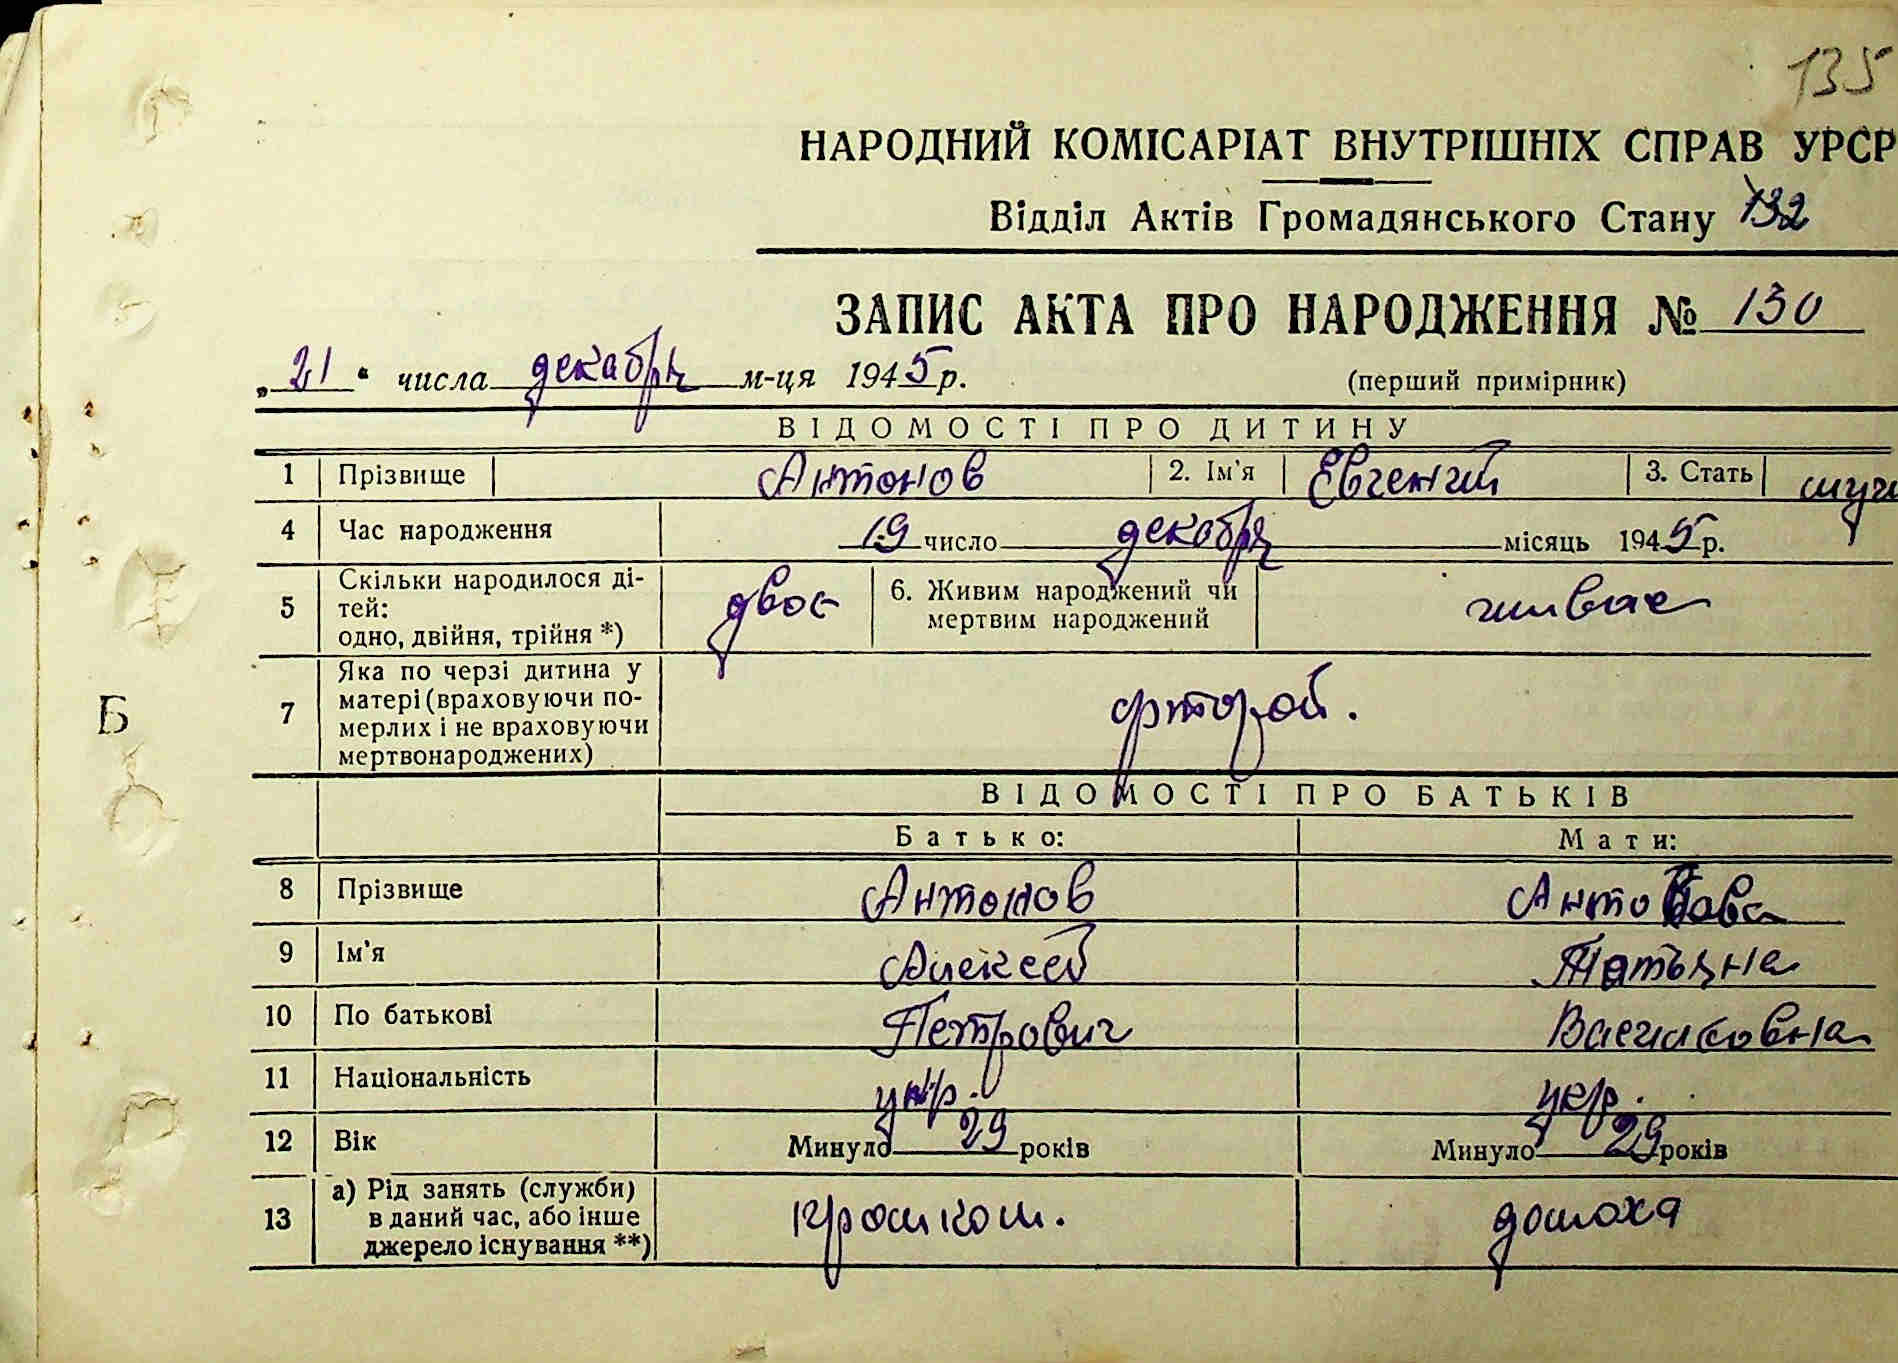 135
НАРОДНИЙ КОМІСАРІАТ ВНУТРІШНІХ СПРАВ УРСР
Відділ Актів Громадянського Стану 132
ЗАПИС АКТА ПРО НАРОДЖЕННЯ № 130
„21“ числа декабря м-ця 1945 р. (перший примірник)
ВІДОМОСТІ ПРО ДИТИНУ
1 Прізвище Антонов 2. Ім'я Евгений 3. Стать
4 Час народження 19 число декабря місяць 1945 р.
5 Скільки народилося ді-
тей:
одно, двійня, трійня *) двое 6. Живим народжений чи
мертвим народжений живые
7 Яка по черзі дитина у
матері (враховуючи по-
мерлих і не враховуючи
мертвонароджених)
Б
ВІДОМОСТІ ПРО БАТЬКІВ
Батько: Мати:
8 Прізвище Антонов Антонова
9 Ім'я Алексей Татьяна
10 По батькові Петрович Васильовна
11 Національність укр. укр.
12 Вік Минуло 29 років Минуло 29 років
13 а) Рід занять (служби)
в даний час, або інше
джерело існування **) домохз